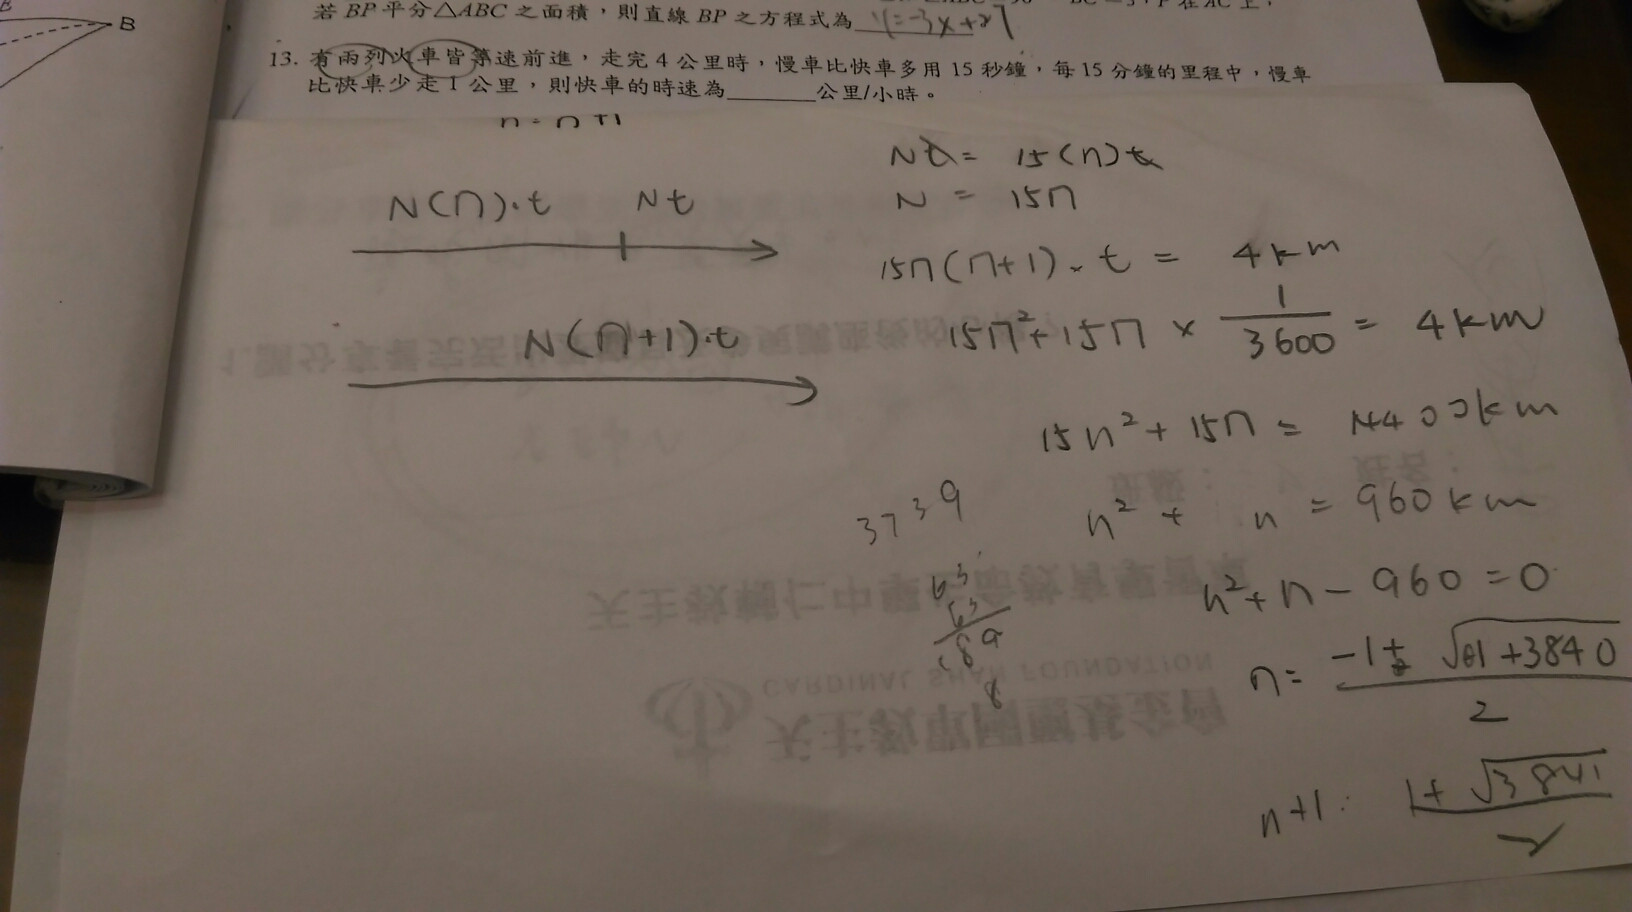 B
若 BP 平分△ABC 之面積，則直線 BP 之方程式為 y=-3x+27
13. 有兩列火車皆等速前進，走完 4 公里時，慢車比快車多用 15 秒鐘，每 15 分鐘的里程中，慢車
比快車少走 1 公里，則快車的時速為______公里/小時。
N(n)·t Nt
N(n+1)·t
Nt = 15(n)t
N = 15n
15n(n+1)×t = 4km
15n²+15n × 1/3600 = 4km
15n²+15n = 14400km
n² + n = 960km
n²+n-960=0
n= (-1± √1+3840)/2
n+1: (1+√3841)/2
3739
63
63
189
8
CARDINAL SHAN FOUNDATION